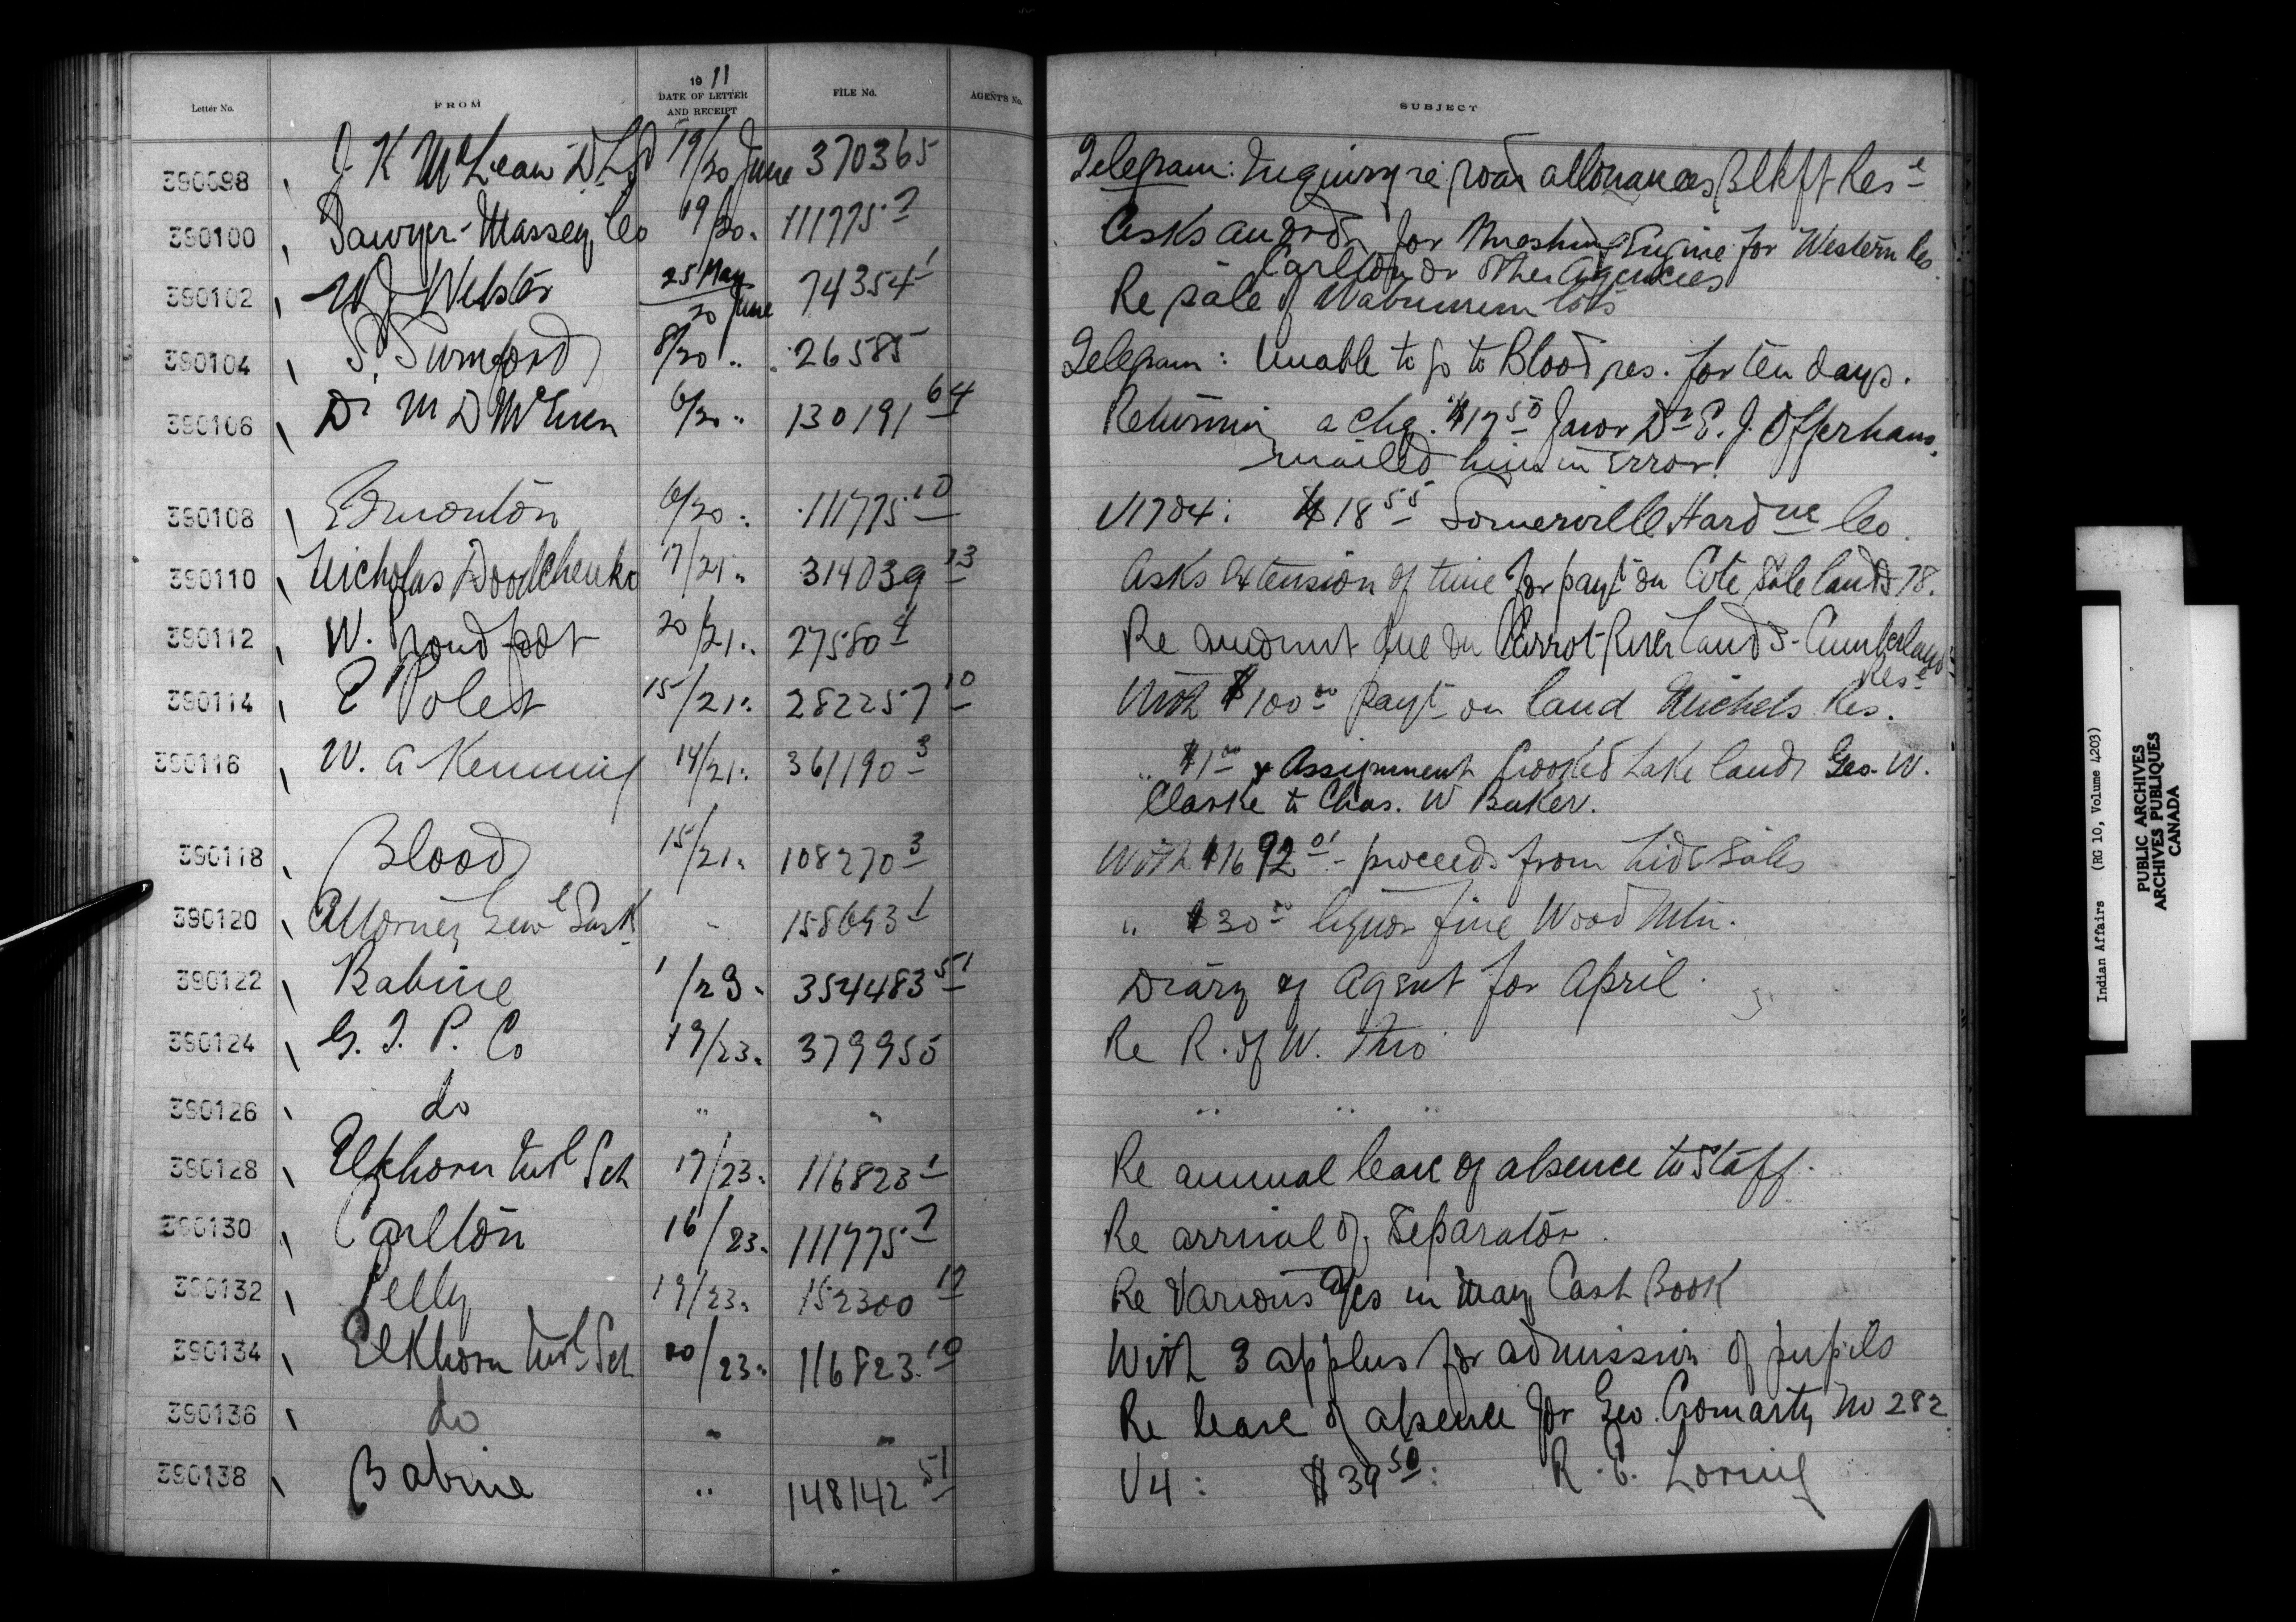 Letter No. FROM 1911 DATE OF LETTER AND RECEIPT FILE No. AGENT'S No. SUBJECT
390098 J K McLean DLS 19/20 June 370365 Telegram: Inquiry re road allowances Blkft Res e
390100 Sawyer-Massey Co 19/20 " 111775 7 Asks an order for Threshing Engine for Western Res
Carlton or other Agencies
390102 W J Webster 25 May/20 June 74354 1 Re sale of Wabumun lots
390104 S. Swinford 8/20 " 26585 Telegram: Unable to go to Blood res. for ten days.
390106 Dr M D McEwen 6/20 " 130191 64 Returning a chq. $17 50 favor Dr E. J. Offerhaus
mailed him in error.
390108 Edmonton 6/20 " 111775 10 V1704: $18 55 Somerville Hard we Co.
390110 Nicholas Doodchenko 17/21 " 314039 13 Asks extension of time for payt on Cote sale lands 78.
390112 W. Proudfoot 20/21 " 27580 4 Re amount due on Carrot River lands - Cumberland
Res e
390114 E Polet 15/21 " 282257 10 With $100 00 payt on land Michels Res.
390116 W. A Kenning 14/21 " 361190 3 " $1 00 & Assignment Crooked Lake lands Geo. W.
Clarke to Chas. W Baker.
390118 Blood 15/21 " 108270 3 With $1692 01 - proceeds from hide sales
390120 Attorney Gen l Sask " 158693 1 " $30 00 liquor fine Wood Mtn.
390122 Babine 1/23 " 354483 51 Diary of Agent for April.
390124 G. T. P. Co 19/23 " 379955 Re R. of W. Thro
390126 do " " " " "
390128 Elkhorn Ind l Sch 17/23 " 116823 1 Re annual leave of absence to staff.
390130 Carlton 16/23 " 111775 7 Re arrival of Separator.
390132 Pelly 19/23 " 152300 12 Re various a/cs in May Cash Book
390134 Elkhorn Ind l Sch 20/23 " 116823 10 With 3 applns for admission of pupils
390136 do " " Re leave of absence for Geo. Cromarty No 282
390138 Babine " 148142 51 V4: $39 50: R. E. Loring
Indian Affairs (RG 10, Volume 4203)
PUBLIC ARCHIVES
ARCHIVES PUBLIQUES
CANADA